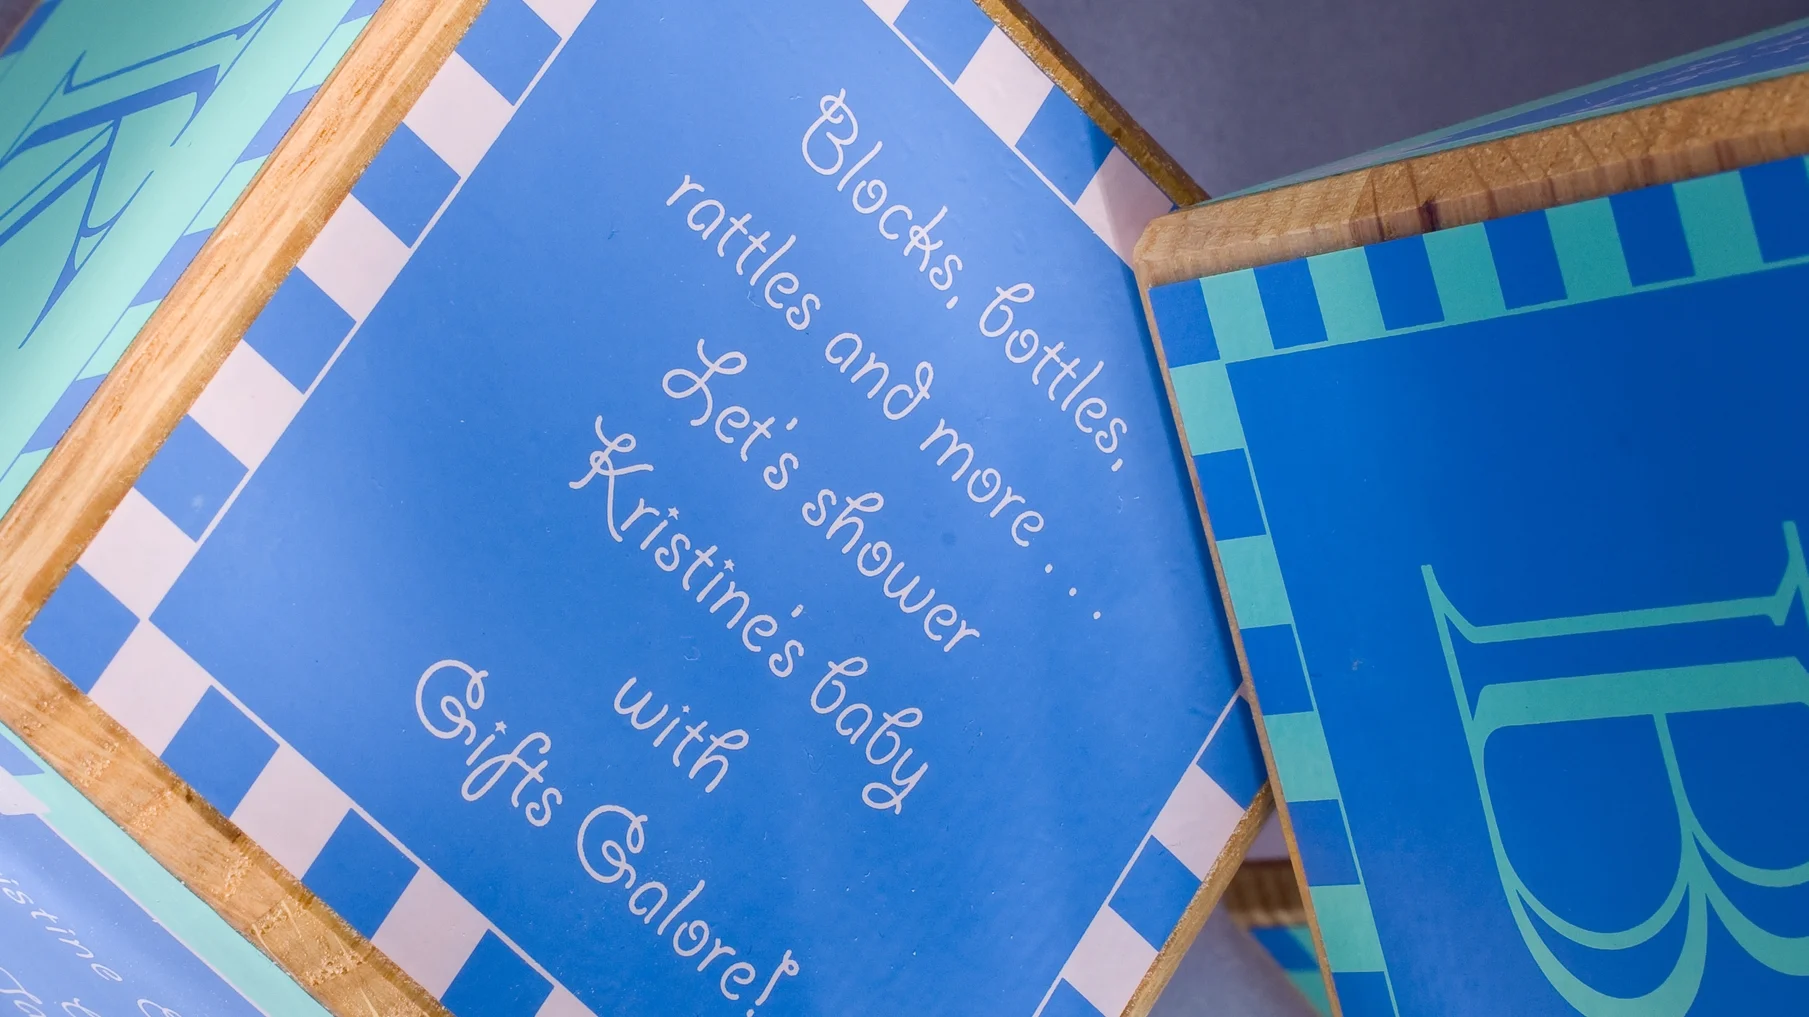 K
Blocks, bottles,
rattles and more . . .
Let's shower
Kristine's baby
with
Gifts Galore!
B